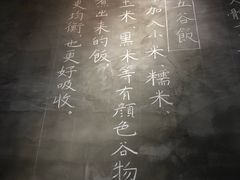 五谷飯
加入小米、糯米、
玉米、黑米等有顏色谷物
煮出来的飯,
更均衡也更好吸收。